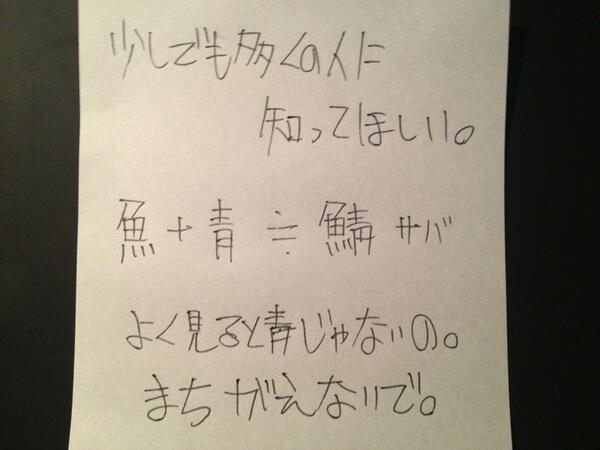 少しでも多くの人に
知ってほしい。
魚+青≒鯖 サバ
よく見ると青じゃないの。
まちがえないで。